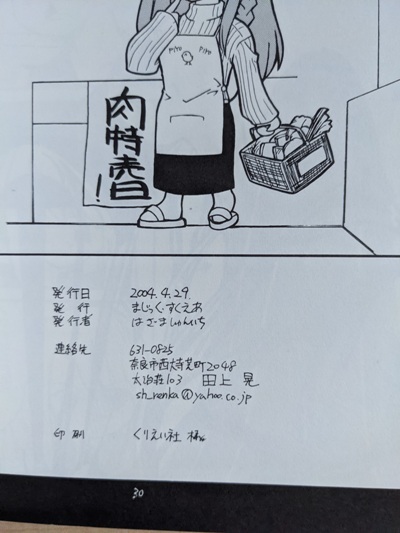 PIYO PIYO
肉特売日!
発行日 2004.4.29.
発行 まじっく・すくえあ
発行者 はざましゅんいち
連絡先 631-0825
奈良市西大寺芝町2048
太治荘103 田上 晃
sh_renka@yahoo.co.jp
印刷 くりえい社 様
30